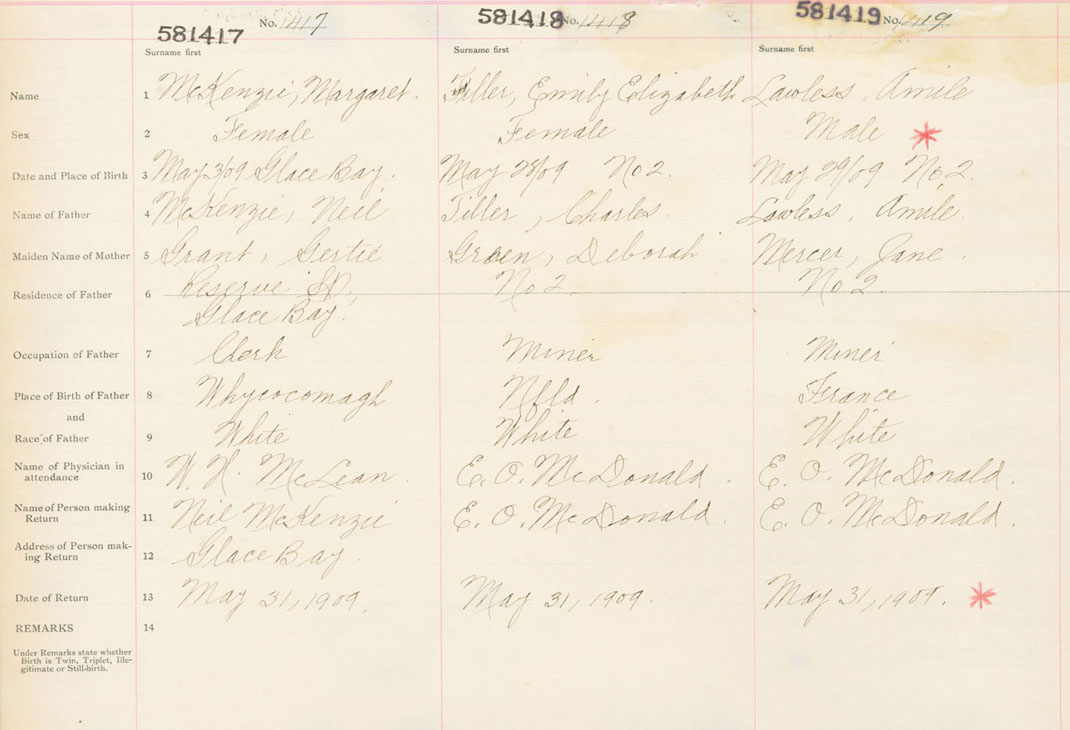 581417 No. 1417 581418 No. 1418 581419 No. 1419
Surname first Surname first Surname first
Name 1 McKenzie, Margaret. Tiller, Emily Elizabeth Lawless, Amile
Sex 2 Female Female Male *
Date and Place of Birth 3 May 3/09 Glace Bay. May 28/09 No 2. May 29/09 No. 2.
Name of Father 4 McKenzie, Neil Tiller, Charles. Lawless, Amile.
Maiden Name of Mother 5 Grant, Gertie Green, Deborah Mercer, Jane.
Residence of Father 6 Reserve No 2. No 2.
Glace Bay.
Occupation of Father 7 Clerk Miner Miner
Place of Birth of Father 8 Whycocomagh Nfld. France
and
Race of Father 9 White White White
Name of Physician in
attendance 10 W. H. McLean. E. O. McDonald. E. O. McDonald.
Name of Person making
Return 11 Neil McKenzie E. O. McDonald. E. O. McDonald.
Address of Person mak-
ing Return 12 Glace Bay.
Date of Return 13 May 31, 1909. May 31, 1909. May 31, 1909. *
REMARKS 14
Under Remarks state whether
Birth is Twin, Triplet, Ille-
gitimate or Still-birth.